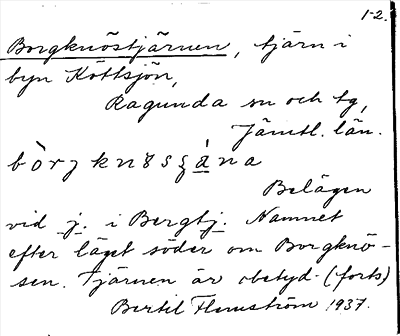 1-2.
Borgknöstjärnen, tjärn i
byn Köttsjön,
Ragunda sn och tg,
Jämtl. län.
Belägen
vid j. i Bergtj. Namnet
efter läget söder om Borgknö-
sen. Tjärnen är obetyd- (forts)
Bertil Flemström 1937.